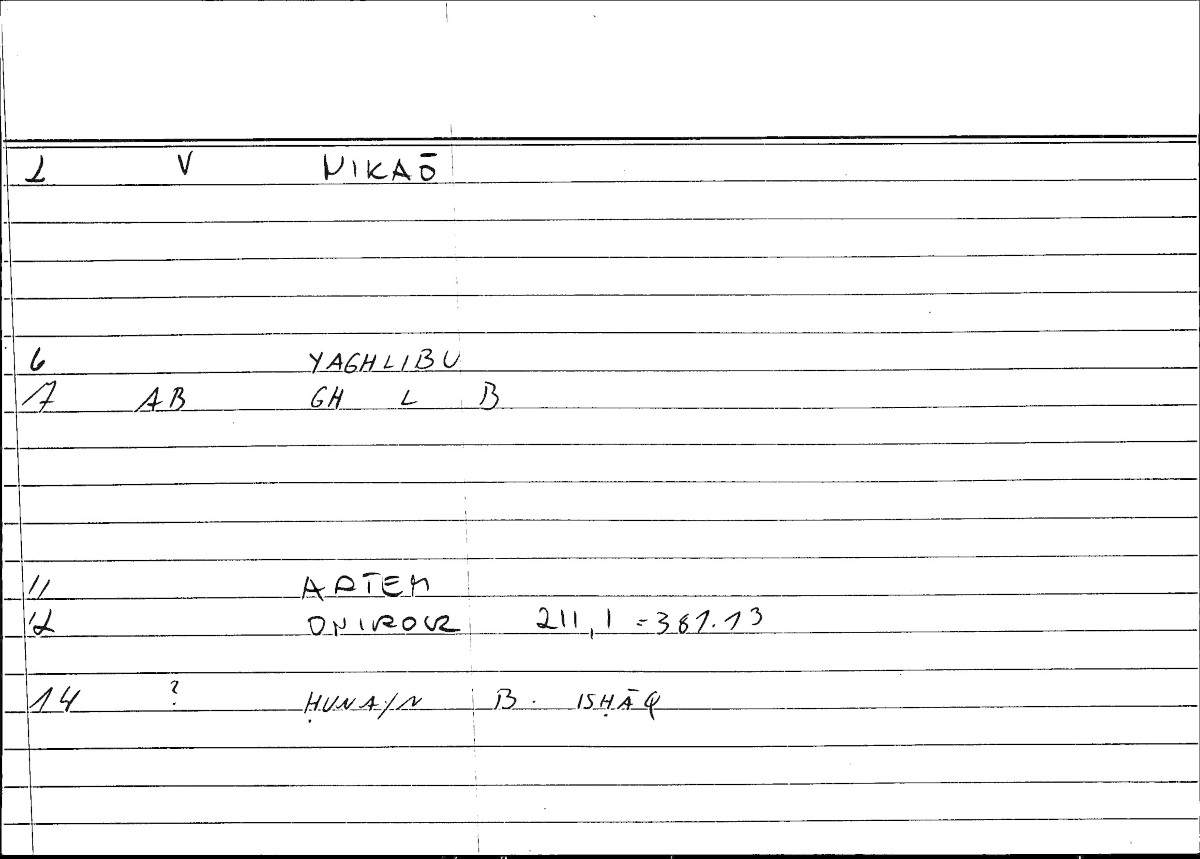 2 V NIKAŌ
6 YAGHLIBU
7 AB GH L B
11 ARTEM
12 ONIROCR 211,1 = 381.13
14 ? ḤUNAIN B. ISḤĀQ